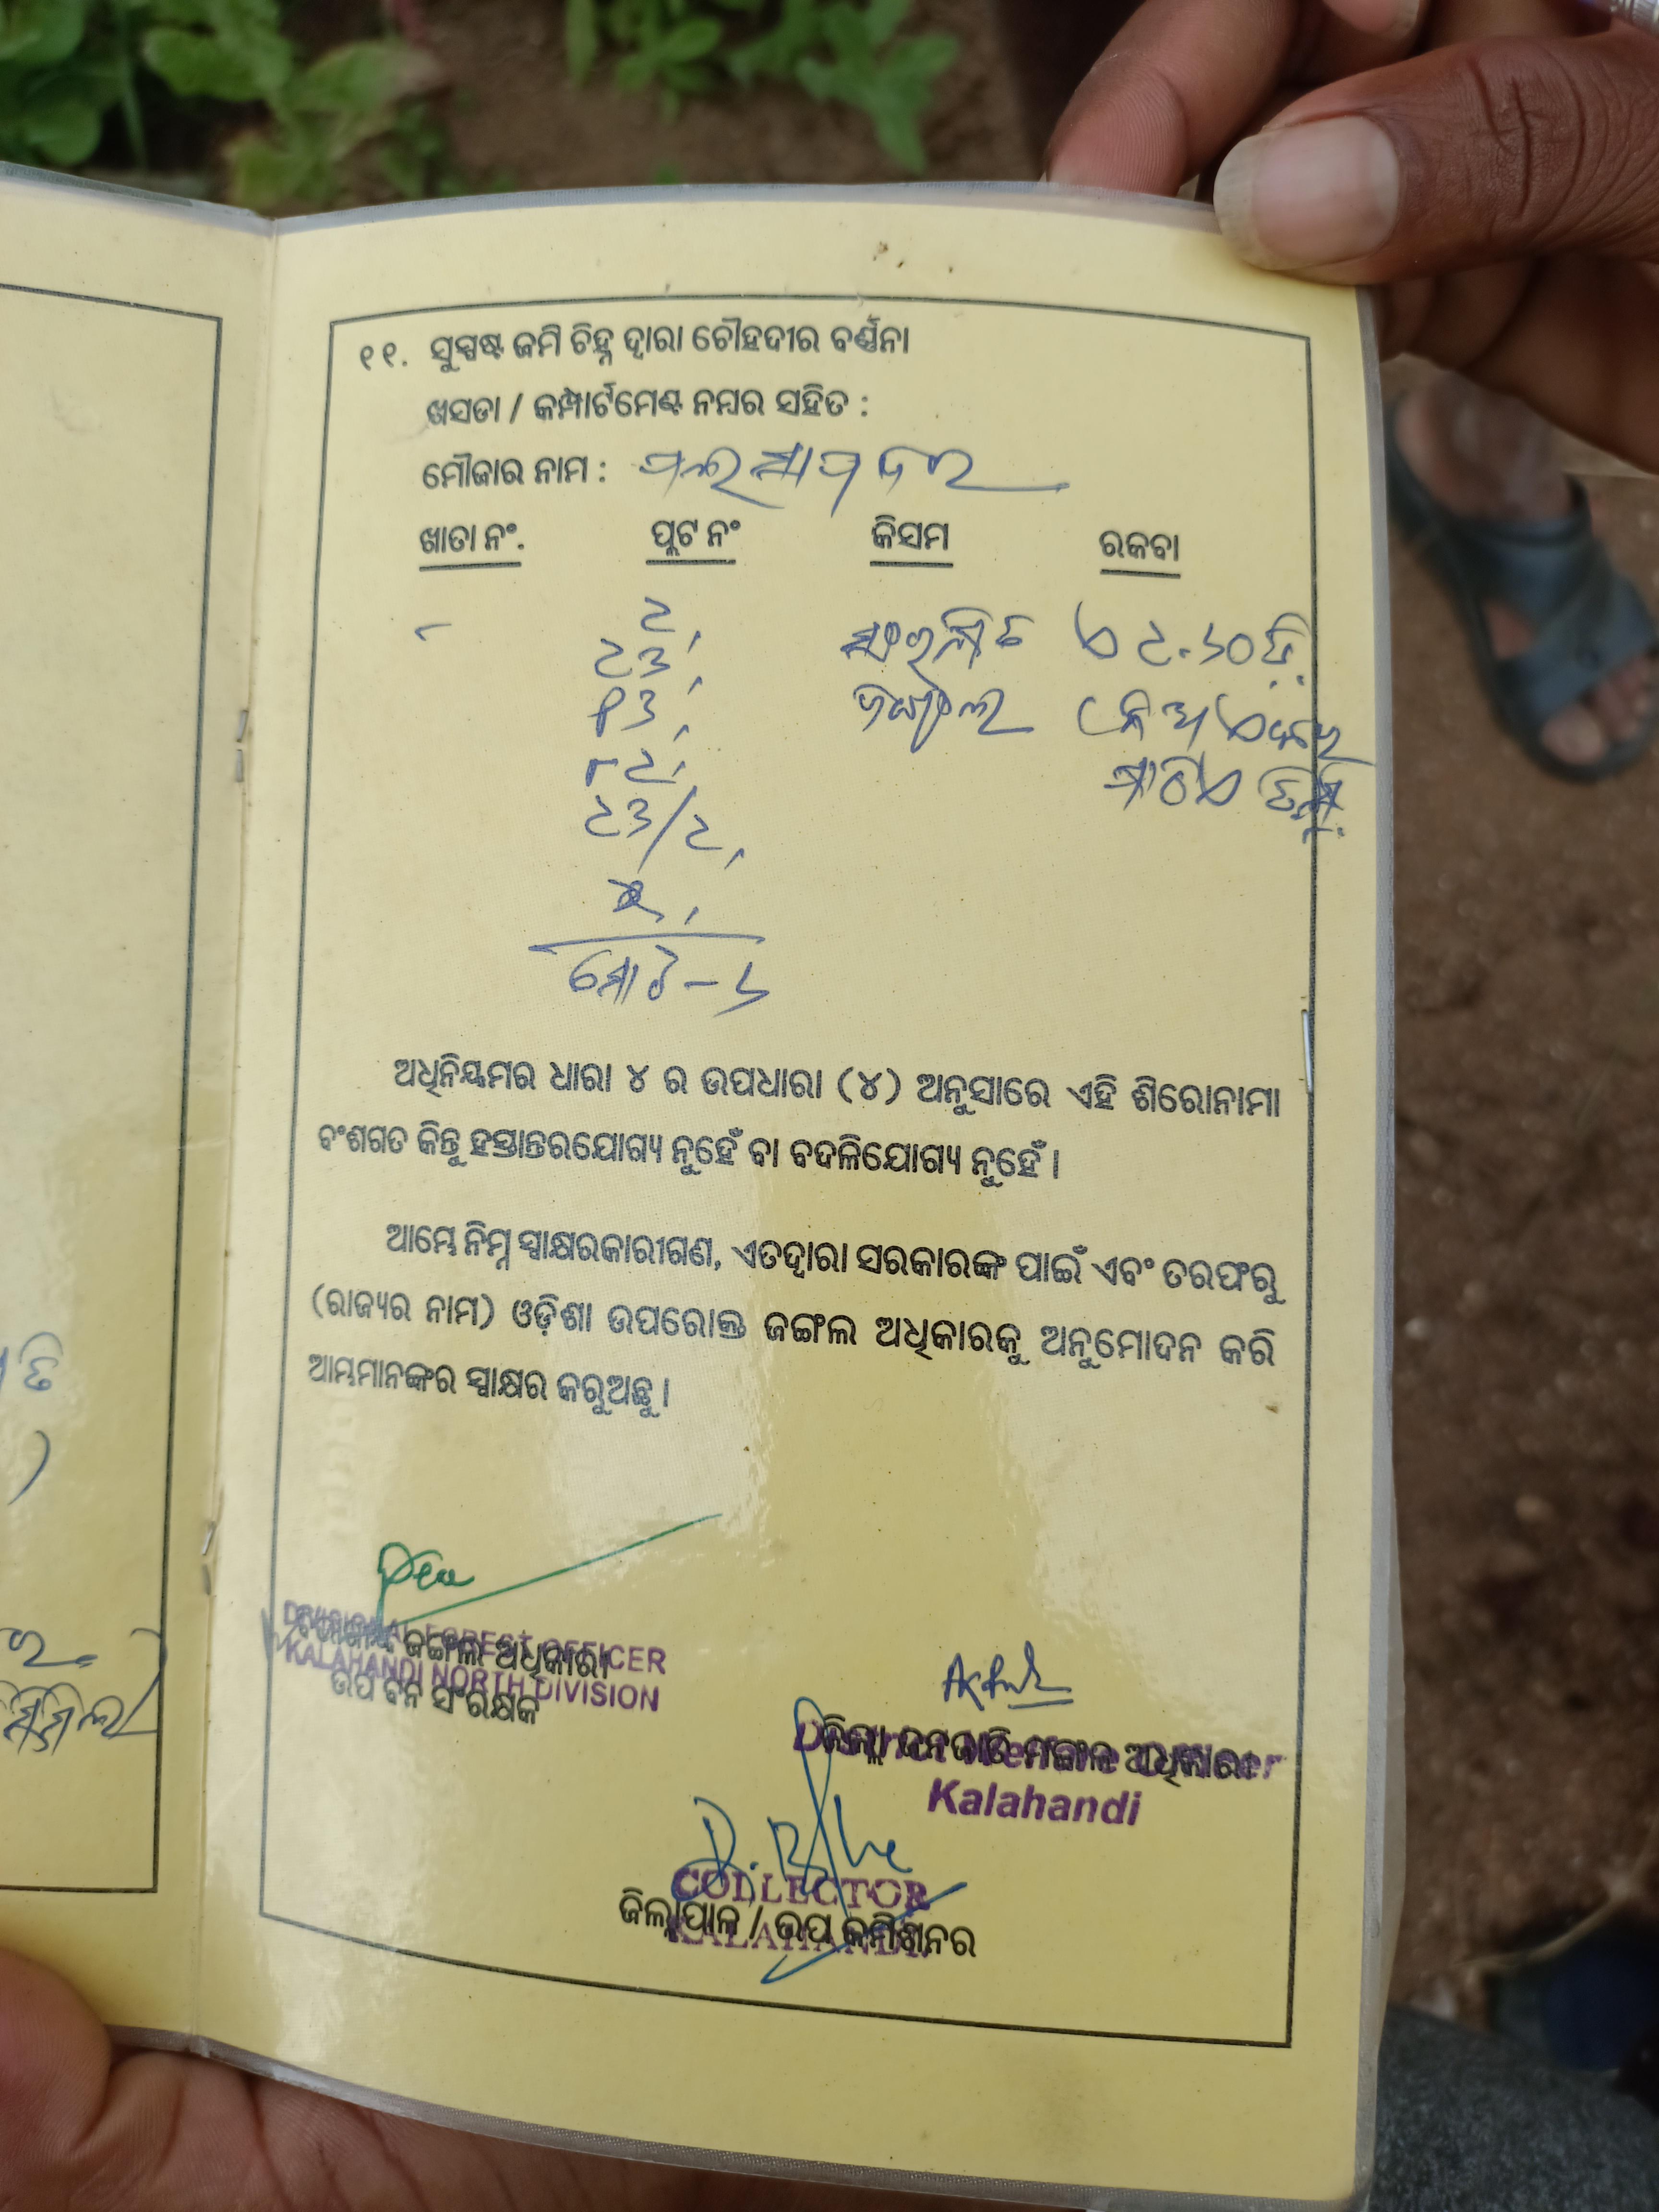 ୧୧. ସୁସ୍ପଷ୍ଟ ଜମି ଚିହ୍ନ ଦ୍ୱାରା ଚୌହଦୀର ବର୍ଣ୍ଣନା
ଖସଡା / କମ୍ପାର୍ଟମେଣ୍ଟ ନମ୍ବର ସହିତ :
ମୌଜାର ନାମ :
ଖାତା ନଂ. ପ୍ଲଟ ନଂ କିସମ ରକବା
୨,
୨୩,
୨୩/୨,
ମୋଟ - ୬
ଅଧିନିୟମର ଧାରା ୪ ର ଉପଧାରା (୪) ଅନୁସାରେ ଏହି ଶିରୋନାମା
ବଂଶଗତ କିନ୍ତୁ ହସ୍ତାନ୍ତରଯୋଗ୍ୟ ନୁହେଁ ବା ବଦଳିଯୋଗ୍ୟ ନୁହେଁ ।
ଆମ୍ଭେ ନିମ୍ନ ସ୍ୱାକ୍ଷରକାରୀଗଣ, ଏତଦ୍ୱାରା ସରକାରଙ୍କ ପାଇଁ ଏବଂ ତରଫରୁ
(ରାଜ୍ୟର ନାମ) ଓଡ଼ିଶା ଉପରୋକ୍ତ ଜଙ୍ଗଲ ଅଧିକାରକୁ ଅନୁମୋଦନ କରି
ଆମ୍ଭମାନଙ୍କର ସ୍ୱାକ୍ଷର କରୁଅଛୁ ।
DIVISIONAL FOREST OFFICER
ବିଭାଗୀୟ ଜଙ୍ଗଲ ଅଧିକାରୀ
KALAHANDI NORTH DIVISION
ଉପ ବନ ସଂରକ୍ଷକ
ଜିଲ୍ଲା ଜନଜାତି ମଙ୍ଗଳ ଅଧିକାରୀ
District Welfare Officer
Kalahandi
COLLECTOR
ଜିଲ୍ଲାପାଳ / ଉପ କମିଶନର
KALAHANDI